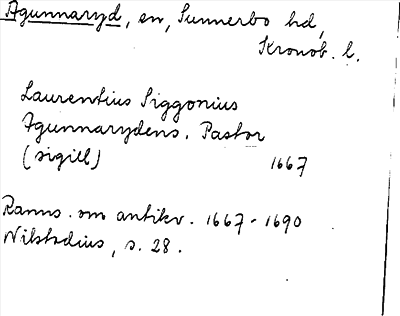 Agunnaryd, sn, Sunnerbo hd,
Kronob. l.
Laurentius Siggonius
Agunnarydens. Pastor
(sigill) 1667
Ranns. om antikv. 1667-1690
s. 28.